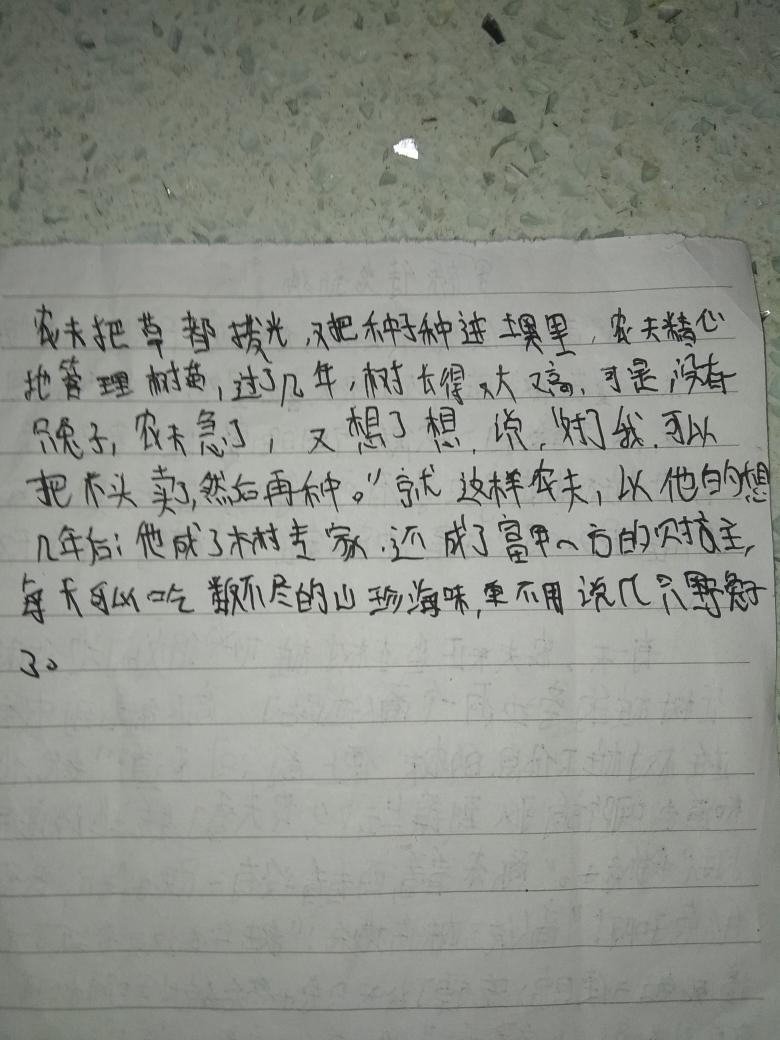 农夫把草都拔光,又把种子种进土壤里,农夫精心
地管理树苗,过了几年,树长得又大又高,可是,没有
只兔子,农夫急了,又想了想,说,"对了我,可以
把木头卖了,然后再种。"就这样农夫,以他的想
几年后;他成了木材专家,还成了富甲一方的财主,
每天可以吃数不尽的山珍海味,更不用说几只野兔子
了。